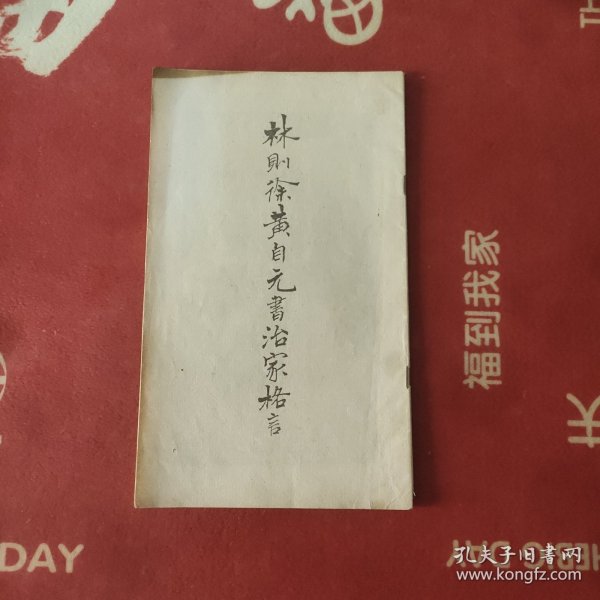 林則徐黄自元書治家格言
福到我家
DAY
孔夫子旧书网
www.kongfz.com